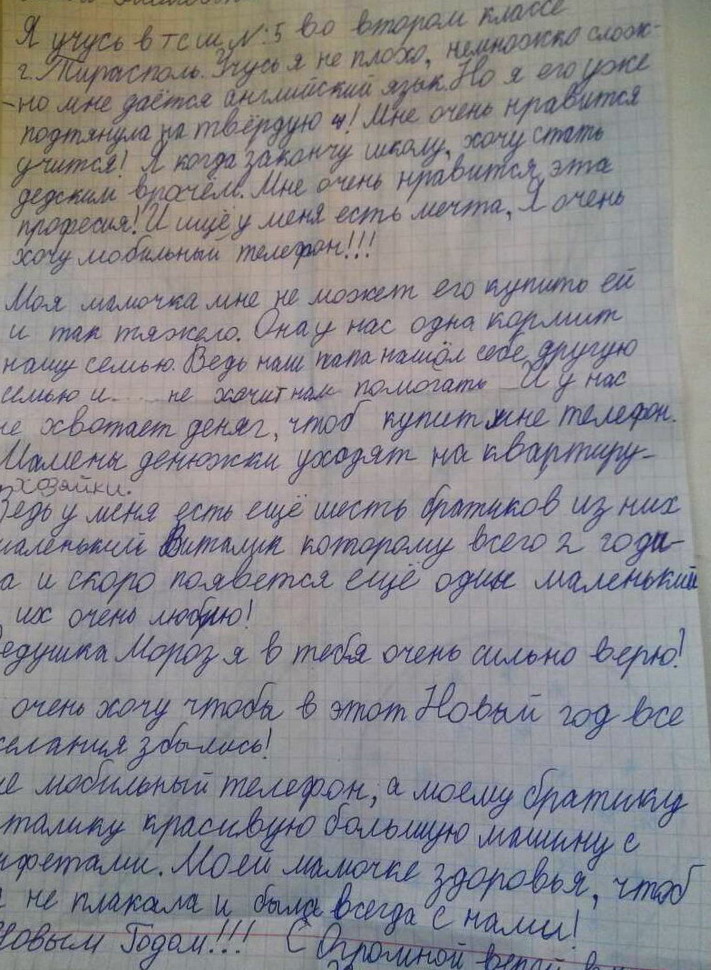 Я учусь в тсш №:5 во втором классе
г. Тирасполь. Учусь я не плохо, немножко слож-
-но мне даётся английский язык. Но я его уже
подтянула на твёрдую 4! Мне очень нравится
учится! Я когда закончу школу, хочу стать
дедским врачём. Мне очень нравится эта
професия! И ищё у меня есть мечта, Я очень
хочу мобильный телефон!!!
Моя мамочка мне не может его купить ей
и так тяжело. Она у нас одна кормит
нашу семью. Ведь наш папа нашол себе другую
семью и.... не хочит нам помогать И у нас
не хвотает деняг, чтоб купит мне телефон.
Мамены денюжки уходят на квартиру-
хозяйки.
Ведь у меня есть ещё шесть братиков из них
маленький Виталик которому всего 2 годи-
а и скоро появется ещё один маленький
их очень люблю!
Дедушка Мороз я в тебя очень сильно верю!
очень хочу чтобы в этот Новый год все
желания збылись!
не мобильный телефон, а моему братику
италику красивую большую машину с
нфетами. Моей мамочке здоровья, чтоб
не плакала и была всегда с нами!
Новым Годом!!! С Огромной верой в